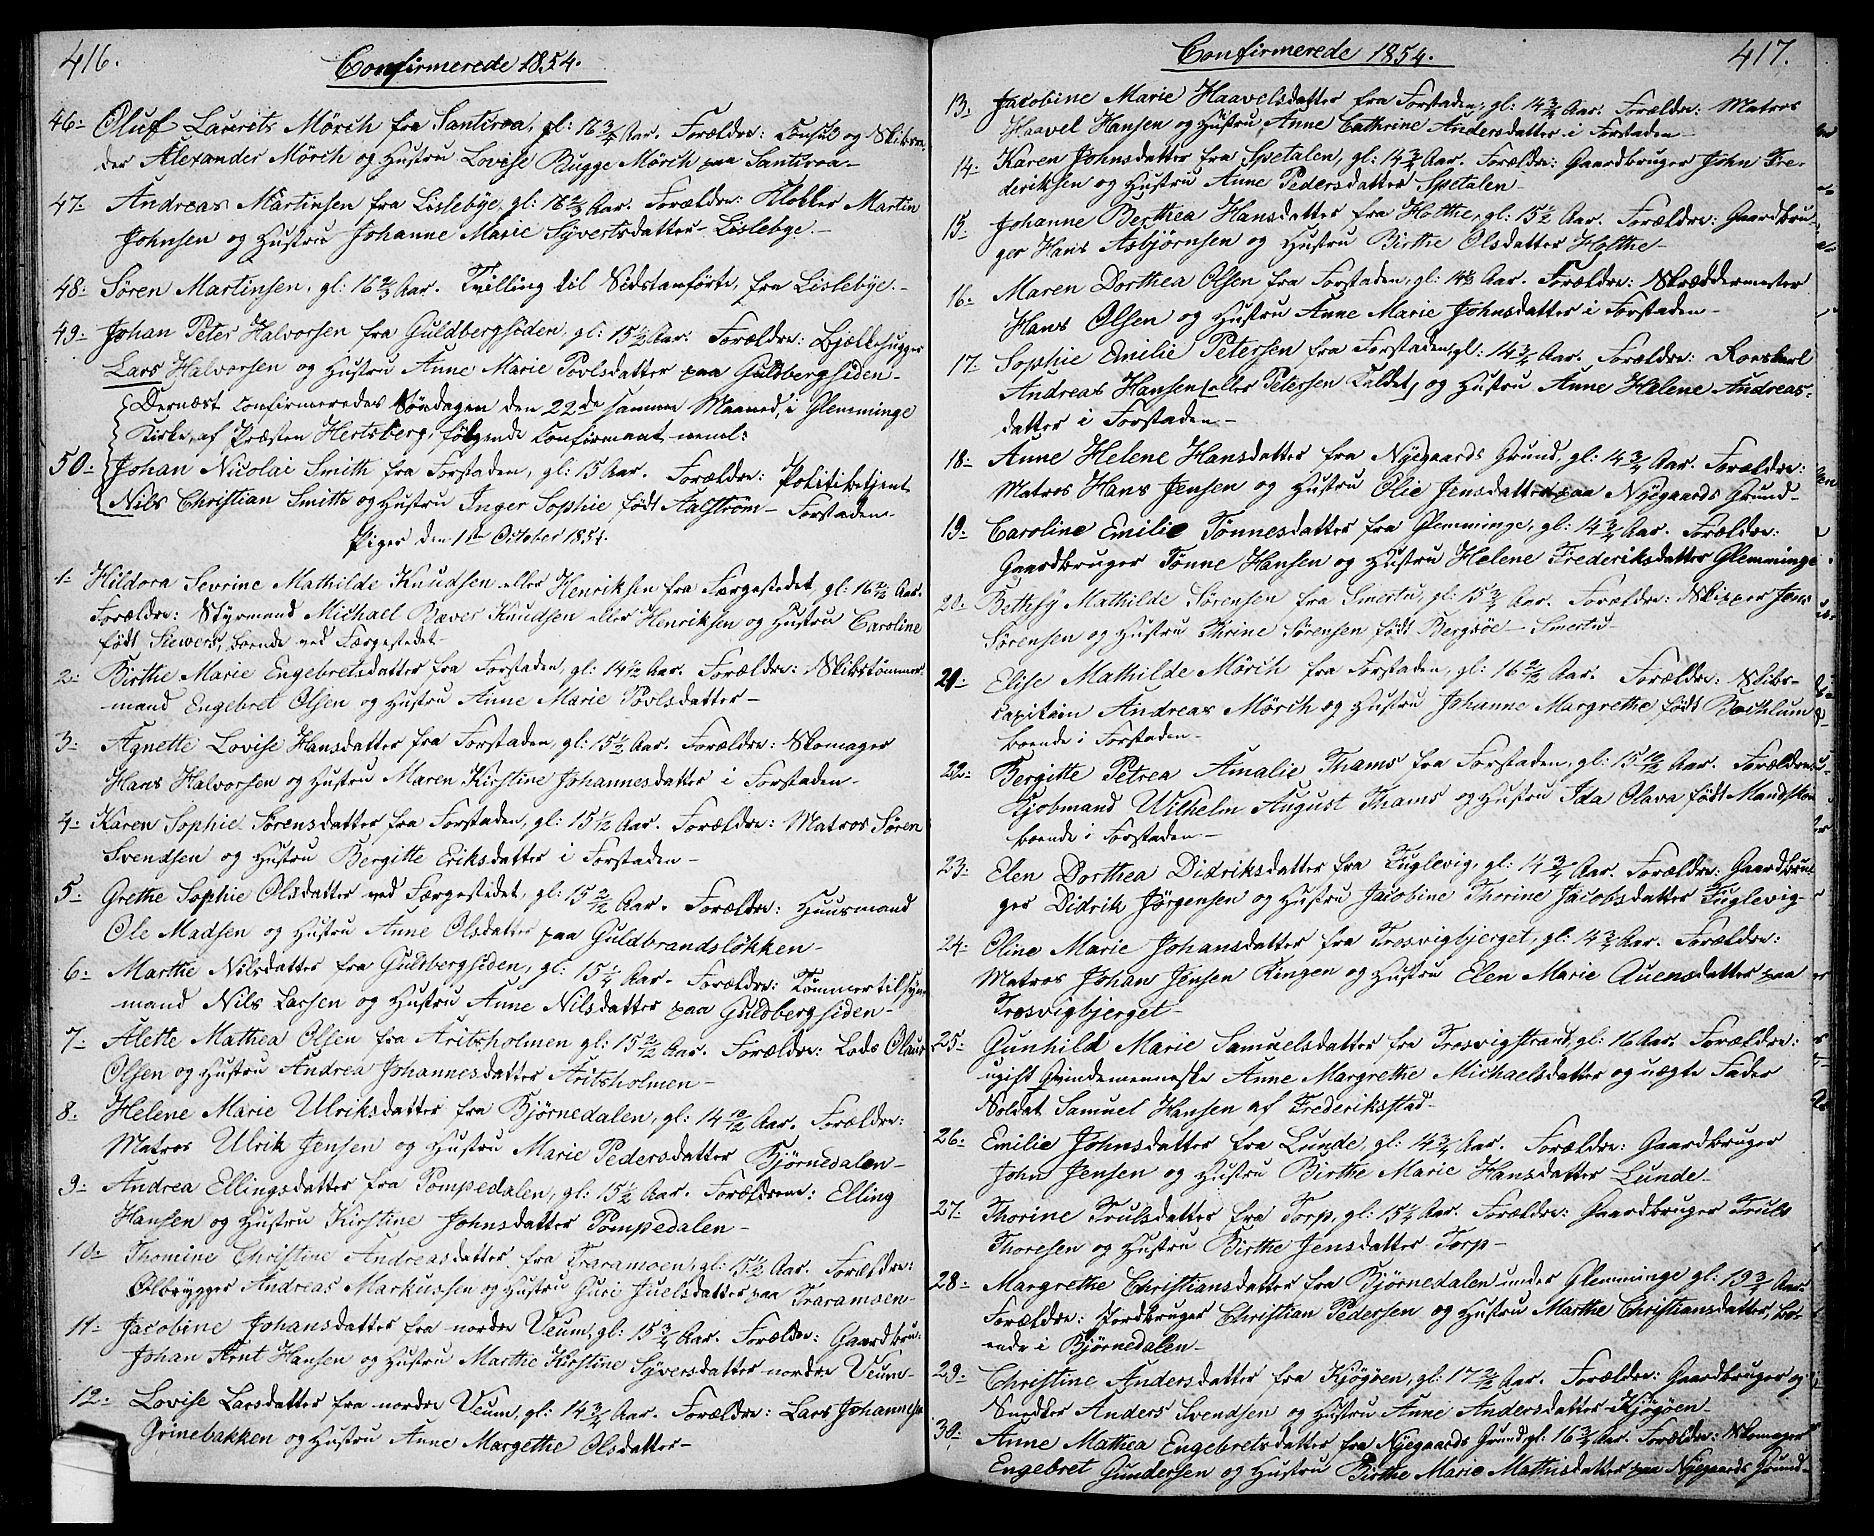 416.
Confirmerede 1854.
46. Oluf Laurits Mörch fra Santiroa, gl: 16 3/4 Aar. Forældre: Consul og Skibsre-
der Alexander Mörch og Hustru Lovise Bugge Mörch paa Santiroa.
47. Andreas Martinsen fra Lislebye, gl: 16 2/3 Aar. Forældre: Klokker Martin
Johnsen og Hustru Johanne Marie Syvertsdatter Lislebye.
48. Søren Martinsen, gl: 16 2/3 Aar. Tvilling til Sidstanførte, fra Lislebye.
49. Johan Peter Halvorsen fra Guldbergsiden, gl: 15 1/2 Aar. Forældre: Bjelkehugger
Lars Halvorsen og Hustru Anne Marie Povlsdatter paa Guldbergsiden
Dernæst Confirmeredes Søndagen den 22de samme Maaned, i Glemminge
Kirke, af Præsten Hertzberg, følgende Confirmant neml:
50. Johan Nicolai Smith fra Forstaden, gl: 15 Aar. Forældre: Politibetjent
Nils Christian Smith og Hustru Inger Sophie født Aalstrøm Forstaden
Piger den 1ste October 1854.
1. Hildora Sevrine Mathilde Knudsen eller Henriksen fra Færgestedet gl: 16 Aar.
Forældre: Styrmand Michael Bæver Knudsen eller Henriksen og Hustru Caroline
født Siewers, boende ved Færgestedet
2. Birthe Marie Engebretsdatter fra Forstaden, gl: 14 1/2 Aar. Forældre: Skibstømmer-
mand Engebret Olsen og Hustru Anne Marie Povlsdatter
3. Agnette Lovise Hansdatter fra Forstaden, gl: 15 1/2 Aar. Forældre: Skomager
Hans Halvorsen og Hustru Maren Kirstine Johannesdatter i Forstaden
4. Karen Sophie Sørensdatter fra Forstaden, gl: 15 1/2 Aar. Forældre: Matros Søren
Svendsen og Hustru Bergitte Eriksdatter i Forstaden
5. Grethe Sophie Olsdatter ved Færgestedet, gl: 15 2/12 Aar. Forældre: Huusmand
Ole Madsen og Hustru Anne Olsdatter paa Guldbrandsløkken
6. Marthe Nilsdatter fra Guldbergsiden, gl: 15 1/4 Aar. Forældre: Tømmertilsyns-
mand Nils Larsen og Hustru Anne Nilsdatter paa Guldbergsiden
7. Alette Mathea Olsen fra Aritsholmen gl: 15 2/12 Aar. Forældre: Lods Olaus
Olsen og Hustru Andrea Johannesdatter Aritsholmen
8. Helene Marie Ulriksdatter fra Bjørnedalen, gl: 14 10/12 Aar. Forældre:
Matros Ulrik Jensen og Hustru Marie Pedersdatter Bjørnedalen
9. Andrea Ellingsdatter fra Pompedalen, gl: 15 1/2 Aar. Forældrene: Elling
Hansen og Hustru Kirstine Johnsdatter Pompedalen
10. Thomine Christine Andreasdatter fra Traramoen, gl: 15 1/2 Aar. Forældre:
Ølbrygger Andreas Markussen og Hustru Guri Juelsdatter paa Traramoen
11. Jacobine Johansdatter fra nordre Veum, gl: 15 3/4 Aar. Forældre: Gaardbru:
Johan Arnt Hansen og Hustru Marthe Kirstine Syversdatter nordre Veum
12. Lovise Larsdatter fra nordre Veum, gl: 14 3/4 Aar. Forældre: Lars Johannesen
Grinebakken og Hustru Anne Margethe Olsdatter
Confirmerede 1854.
417.
13. Jacobine Marie Haavelsdatter fra Forstaden, gl: 14 3/4 Aar. Forældre: Matros
Haavel Hansen og Hustru Anne Cathrine Andersdatter i Forstaden
14. Karen Johnsdatter fra Spetalen, gl: 14 3/4 Aar. Forældre: Gaardbruger John Fre-
deriksen og Hustru Anne Pedersdatter Spetalen
15. Johanne Berthea Hansdatter fra Holthe, gl: 15 1/2 Aar. Forældre: Gaardbru-
ger Hans Asbjørnsen og Hustru Birthe Olsdatter Holthe
16. Maren Dorthea Olsen fra Forstaden, gl: 14 1/2 Aar. Forældre: Skreddermester
Hans Olsen og Hustru Anne Marie Johnsdatter i Forstaden
17. Sophie Emilie Petersen fra Forstaden, gl: 14 3/4 Aar. Forældre: Roeskarl
Andreas Hansen (eller Petersen kaldet) og Hustru Anne Helene Andreas-
datter i Forstaden
18. Anne Helene Hansdatter fra Nygaards Grund, gl: 14 3/4 Aar. Forældre:
Matros Hans Jensen og Hustru Olie Jensdatter paa Nyegaards Grund
19. Caroline Emilie Tønnesdatter fra Glemminge, gl: 14 3/4 Aar. Forældre:
Gaardbruger Tønne Hansen og Hustru Helene Frederiksdatter Glemminge
20. Bethsy Mathilde Sørensen fra Smertu, gl: 15 3/4 Aar. Forældre: Skipper Jens
Sørensen og Hustru Thrine Sørensen født Bergsöe Smertu
21. Elise Mathilde Mörch fra Forstaden, gl: 16 Aar. Forældre: Skibs-
kapitain Andreas Mörch og Hustru Johanne Margrethe født Bochlum
boende i Forstaden
22. Bergitte Petrea Amalie Thams fra Forstaden, gl: 15 10/12 Aar. Forældre:
Kjøbmand Wilhelm August Thams og Hustru Ida Olava født
boende i Forstaden
23. Elen Dorthea Didriksdatter fra Fuglevig, gl: 14 3/4 Aar. Forældre: Gaardbru-
ger Didrik Jörgensen og Hustru Jacobine Thorine Jacobsdatter Fuglevig
24. Oline Marie Johansdatter fra Trosvigbjerget, gl: 14 3/4 Aar. Forældre:
Matros Johan Jensen Ringen og Hustru Elen Marie Auensdatter paa
Trosvigbjerget
25. Gunhild Marie Samuelsdatter fra Trosvigstrand, gl: 16 Aar. Forældre:
ugift Qvindemenneske Anne Margrethe Michaelsdatter og uægte Fader
Soldat Samuel Hansen af Frederiksstad
26. Emilie Johnsdatter fra Lunde, gl: 14 3/4 Aar. Forældre: Gaardbruger
John Jensen og Hustru Birthe Marie Hansdatter Lunde
27. Thorine Trulsdatter fra Torp, gl: 15 1/4 Aar. Forældre: Gaardbruger Truls
Thoresen og Hustru Birthe Jensdatter Torp
28. Margrethe Christiansdatter fra Bjørnedalen under Glemminge gl: 19 3/4 Aar.
Forældre: Jordbruger Christian Pedersen og Hustru Marthe Christiansdatter, bo-
ende i Bjørnedalen
29. Christine Andersdatter fra Kjøgøen, gl: 17 Aar. Forældre: Gaardbruger og
Snedker Anders Svendsen og Hustru Anne Andersdatter Kjøgøen
30. Anne Mathea Engebretsdatter fra Nyegaards Grund gl: 16 3/4 Aar. Forældre: Skomager
Engebret Gundersen og Hustru Birthe Marie Mathisdatter paa Nyegaards Grund